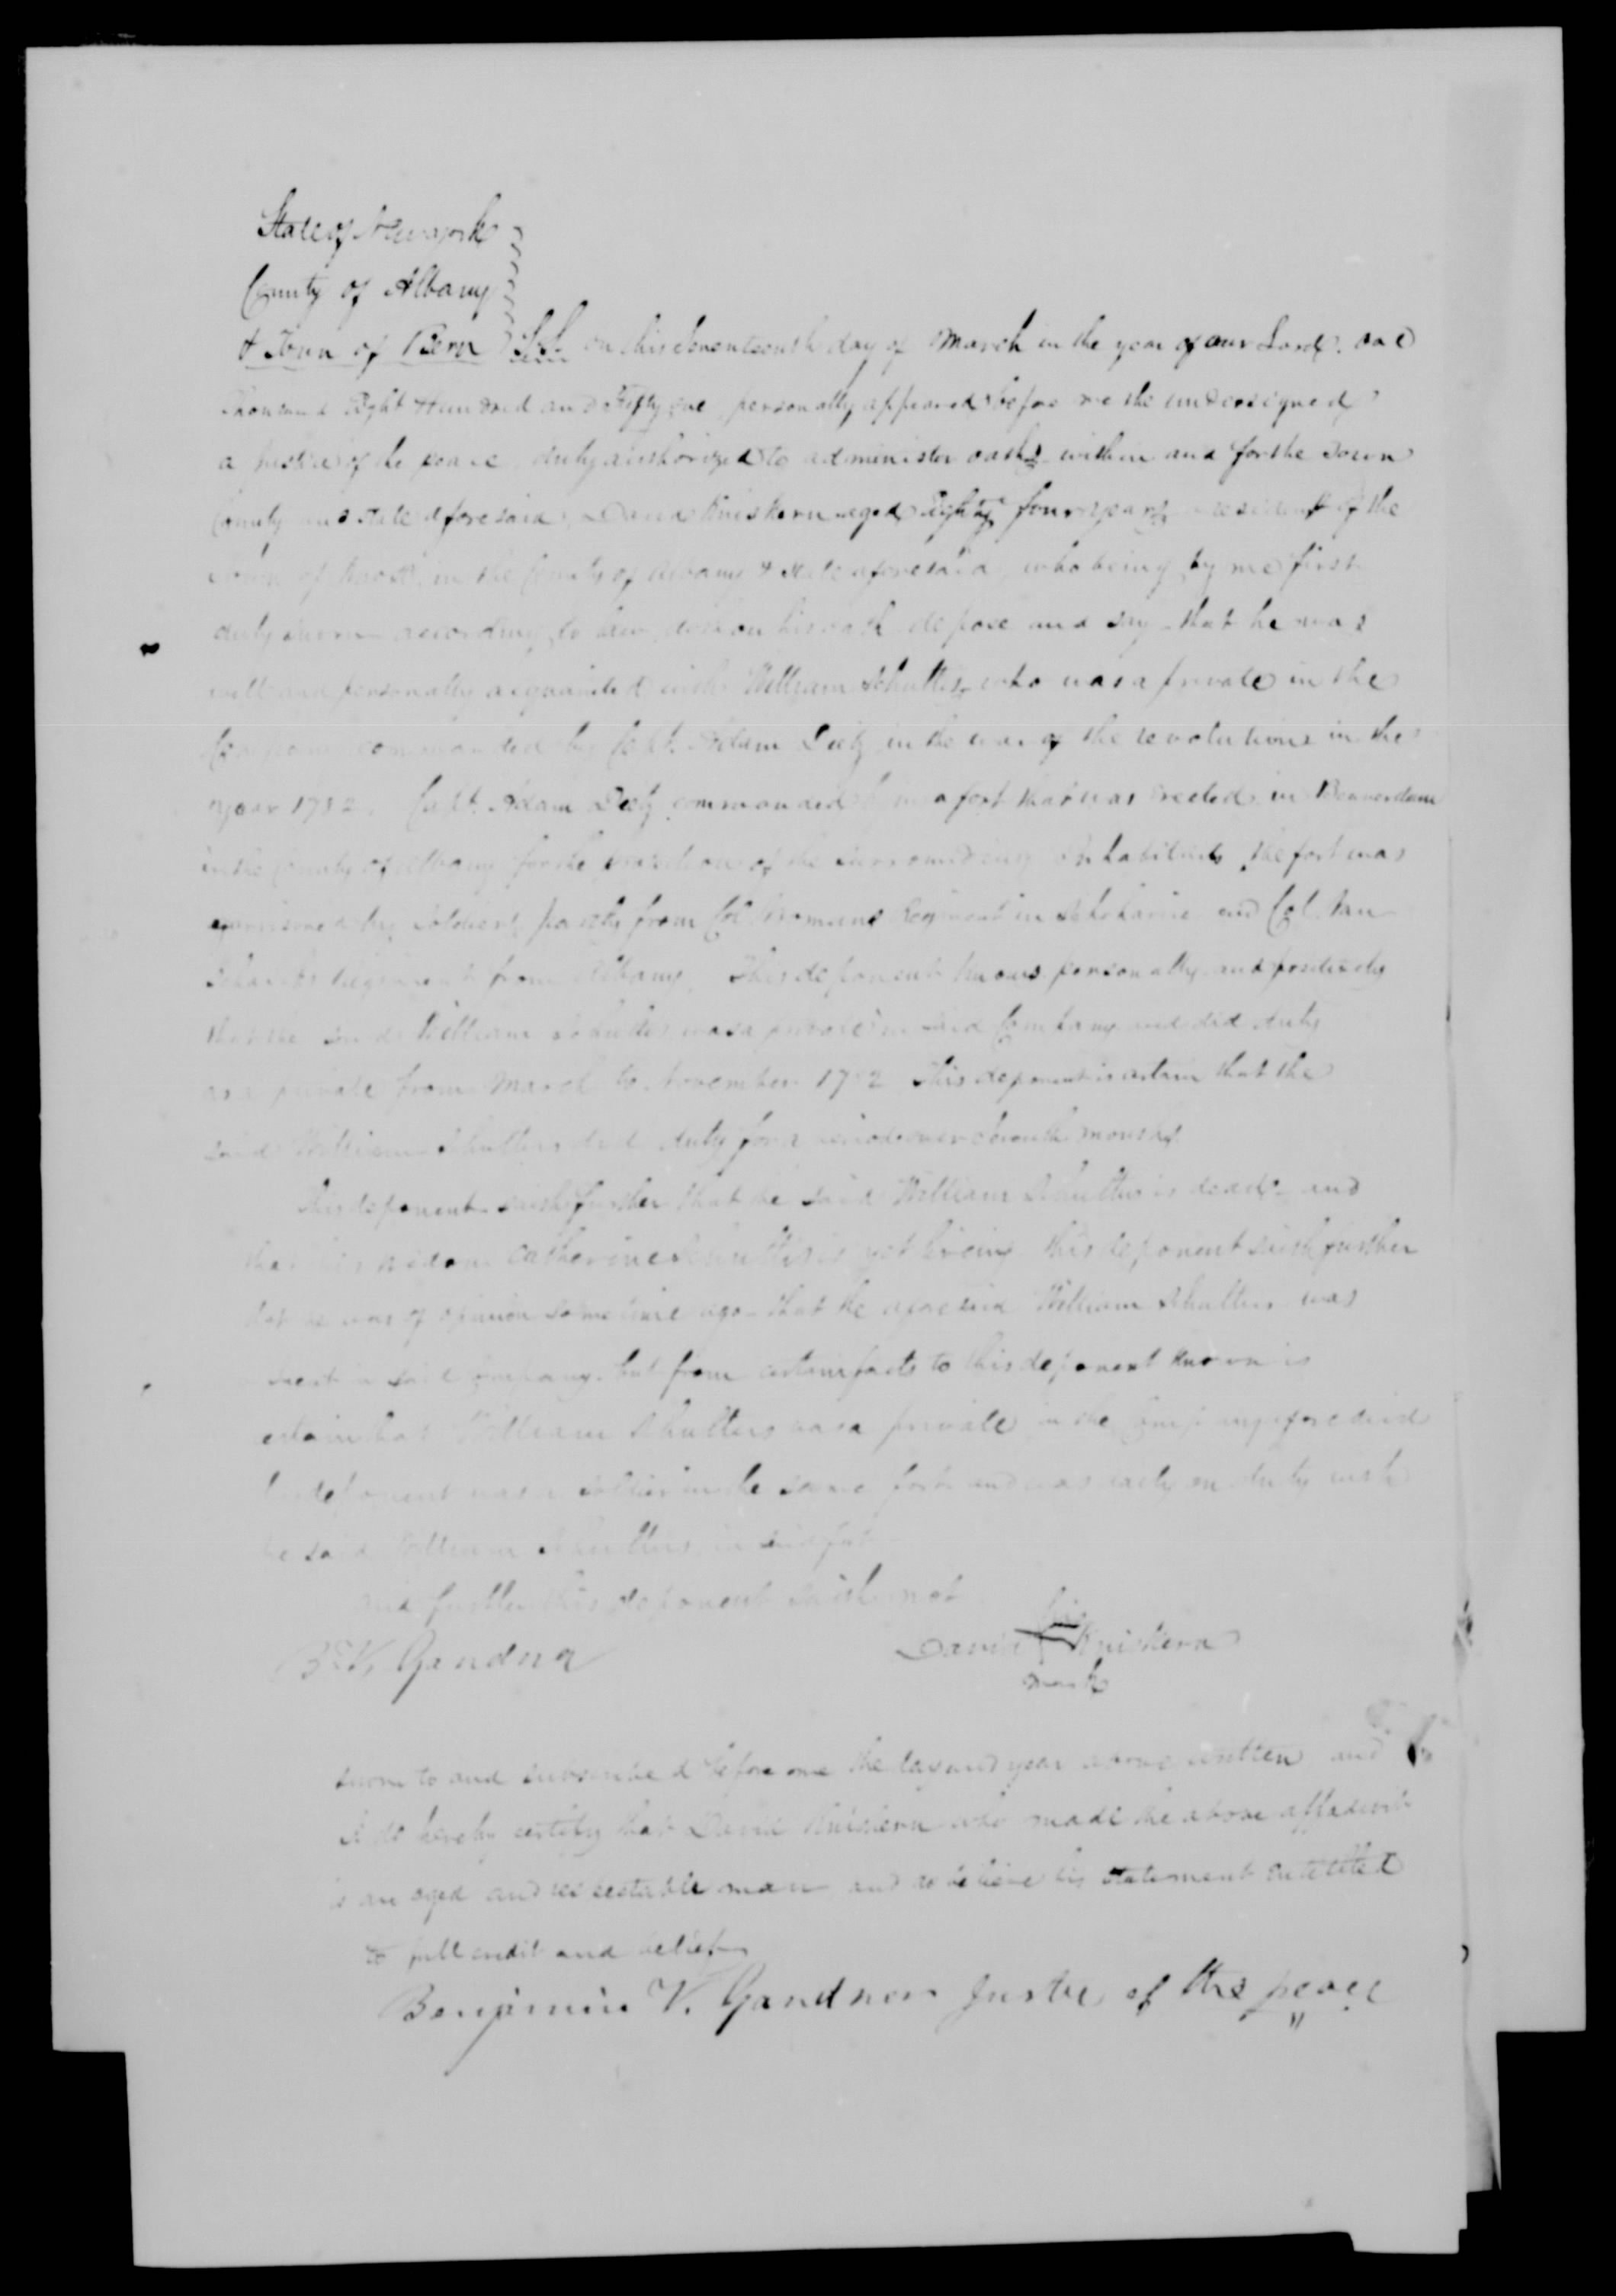 State of Newyork
County of Albany
& Town of Bern SS. on this seventeenth day of March in the year of our Lord. one
Thousand Eight Hundred and Fifty one personally appeared before me the undersigned
a justice of the peace duly authorized to administer oaths within and for the Town
County and State aforesaid, David Kniskern aged Eighty four years a resident of the
Town of Knox in the County of Albany & State aforesaid who being by me first
duly sworn according to law doth on his oath depose and say that he was
well and personally acquainted with William Schultes who was a private in the
Company commanded by Capt. Adam Deitz in the war of the revolutions in the
year 1782. Capt. Adam Deitz commanded in a fort that was Erected in Beaverdam
in the County of Albany for the protection of the surrounding Inhabitants the fort was
garrisoned by soldiers partly from Col. Vromans Regiment in Schoharie and Col. Van
Regiment from Albany. This deponent knows personally and positively
that the said William Schultes was a private in said Company and did duty
as a private from March to November 1782 This deponent is certain that the
said William Schultes did duty for a months
This deponent saith further that the said William Schultes is dead. and
that his widow Catherine Schultes is yet living this deponent saith further
that he was of opinion sometime ago that the aforesaid William Schultes was
in said Company. but from certain facts to this deponent known is
certain that William Schultes was a private in the Company aforesaid
this deponent was a soldier in the same fort and was on duty with
the said William Schultes in said fort
and further this deponent saith not
B. V. Gardner
his
David Kniskern
mark
sworn to and subscribed before me the day and year above written and
I do hereby certify that David Kniskern who made the above affidavit
is an aged and respectable man and do believe his statement entitled
to full credit and belief
Benjamin V. Gardner Justice of the peace